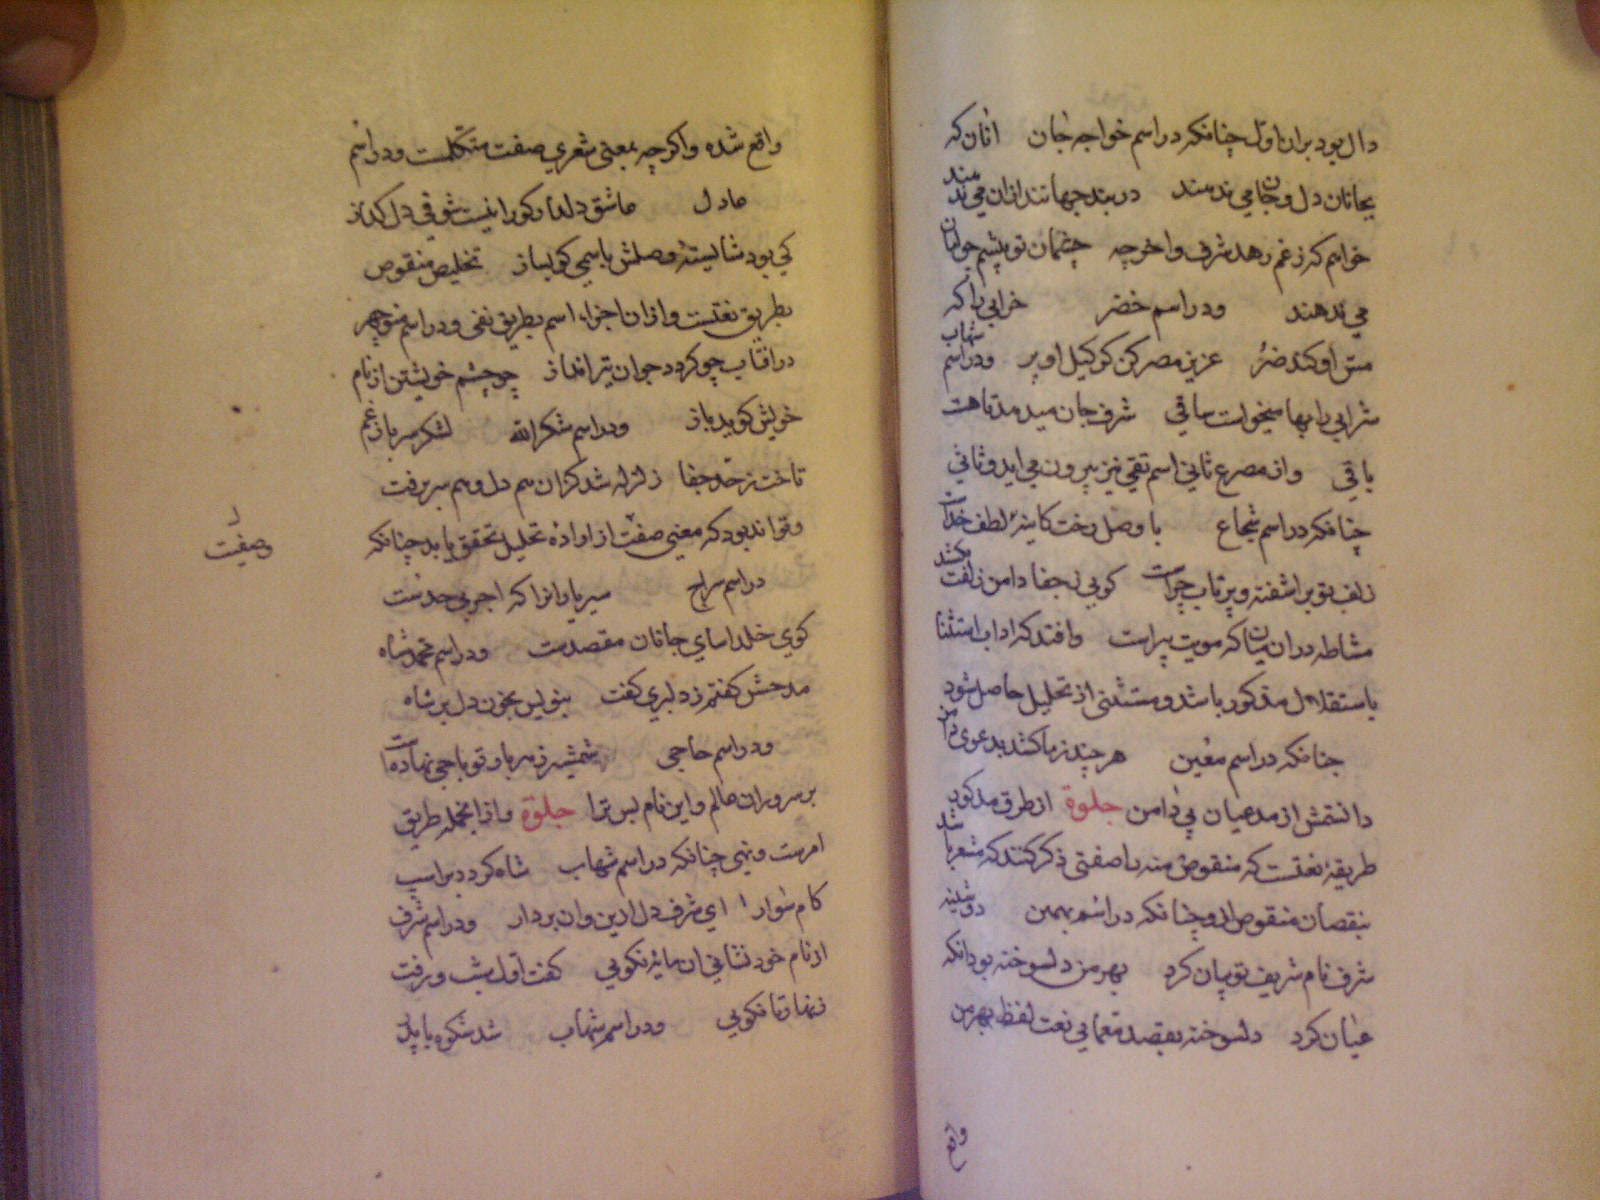 دال بود بران اول چنانکه در اسم خواجه جان انان که
بجانان دل و جان می ندهند در بند جهانند ازان می ندهند
خواهم که ز غم رهد شرف وا خرچه چشمان تو
می ندهند و در اسم خضر خرابی را که
مس او کند ضر عزیز مصر کن کو کیل او پر و در اسم شهاب
شرابی را بها میخواست ساقی شرف جان میدهد تا هست
باقی و از مصرع ثانی اسم تقی نیز بیرون می اید و ثانی
چنانکه در اسم شجاع با وصل رخت کاینه لطف خداست
زلف تو بر اشفته و پر تاب چراست کویی ز جفا دامن زلفت مکشد
مشاطه دران میان که مویت پیراست وافتد که اداب استثنا
باستقلال مذکور باشد و مستثنی از تحلیل حاصل شود
چنانکه در اسم معین هر چند ز ما کشد بدعوی دامن
دانستمش از مدعیان پی دامن جلوة از طرق مذکور
طریقه نعتست که منقوص منه با صفتی ذکر کنند که مشعر باشد
بنقصان منقوص ازو چنانکه در اسم بهمن دوشینه
شرف نام شریف تو بیان کرد بهر من دلسوخته بودانکه
عیان کرد دلسوخته بقصد معمایی نعت لفظ بهر من
واقع
واقع شده واکرچه بمعنی شعری صفت متکلمست و در اسم
عادل عاشق دلداد کورا نیست شوقی دل کداز
کی بود شایسته وصلش باسمی کو بساز تخلیص منقوص
بطریق نعتست و ازان اجزاء اسم بطریق نفی و در اسم منوچهر
در افتاب چو کردد جوان تیر انداز چو چشم خویشتن از نام
خویش کوید باز و در اسم شکر الله لشکر سر باز غم
تاخت ز حد و جفا زلزله شد کران هم دل و هم سر برفت
و تواند بود که معنی صفت از اواده تحلیل تحقق یابد چنانکه
وصفیت
در اسم سراج سیر یارانرا که اجر بی حدست
کوی خلد اسای جانان مقصدست و در اسم محمد شاه
مدحش کفتم ز دلبری کفت بنویس بخون دل بر شاه
و در اسم حاجی شمشیر ز سر بار تو باجی نهاده است
بر سروران عالم و این نام بس ترا جلوة و از انجمله طریق
امرست و نهی چنانکه در اسم شهاب شاه کردد بر اسپ
کام سوار ای شرف دل ازین و ان بردار و در اسم شرف
از نام خود نشانی ان مایه نکویی کفت اول شب و رفت
زنهار تا نکویی و در اسم شهاب شد شکوه با